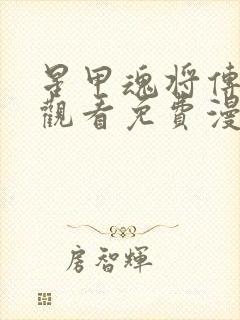 星甲魂將傳
觀看免費漫
房智輝